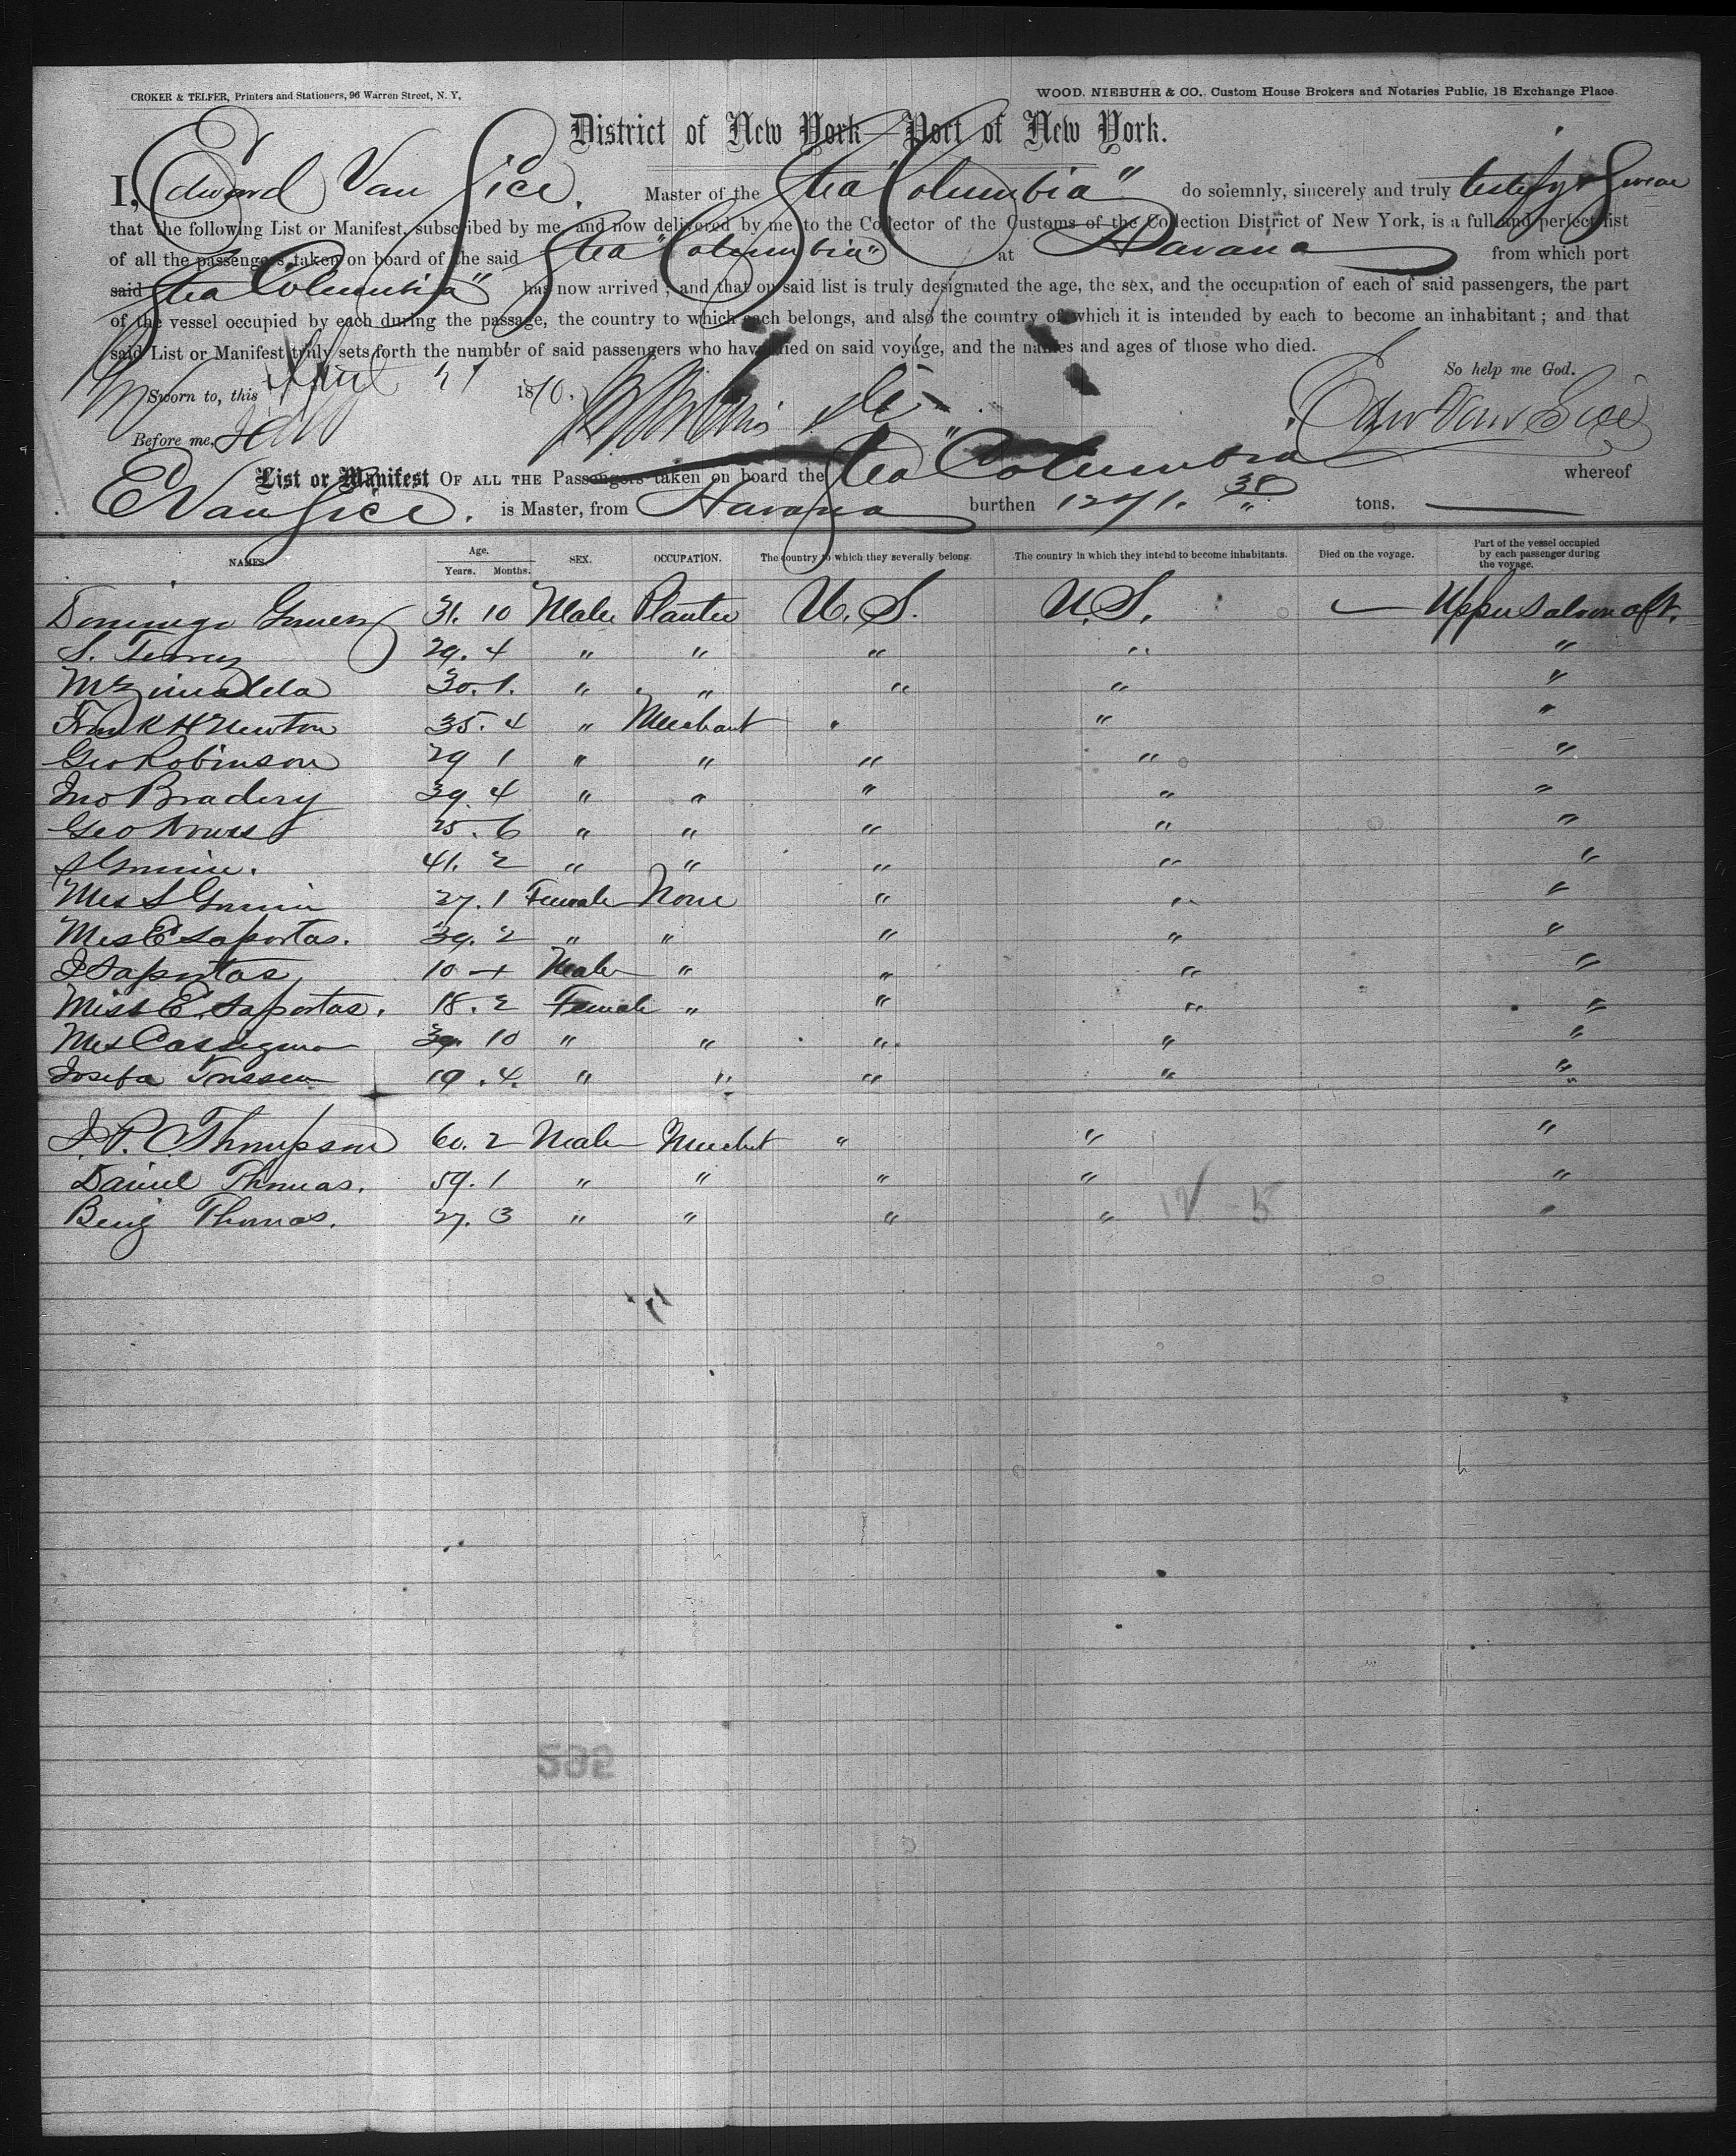 CROKER & TELFER, Printers and Stationers, 96 Warren Street, N. Y.
WOOD, NIEBUHR & CO., Custom House Brokers and Notaries Public, 18 Exchange Place.
District of New York—Port of New York.
I, Edward Van Sice, Master of the Stea "Columbia" do solemnly, sincerely and truly testify & Swear
that the following List or Manifest, subscribed by me, and now delivered by me to the Collector of the Customs of the Collection District of New York, is a full and perfect list
of all the passengers taken on board of the said Stea "Columbia" at Havana from which port
said Stea "Columbia" has now arrived; and that on said list is truly designated the age, the sex, and the occupation of each of said passengers, the part
of the vessel occupied by each during the passage, the country to which each belongs, and also the country of which it is intended by each to become an inhabitant; and that
said List or Manifest truly sets forth the number of said passengers who have died on said voyage, and the names and ages of those who died.
So help me God.
Sworn to, this April 21 1870.
Before me,
Edw Van Sice
List or Manifest OF ALL THE Passengers taken on board the Stea "Columbia whereof
E Van Sice. is Master, from Havana burthen 1271. 38 tons.
NAMES. Age. Years. Months. SEX. OCCUPATION. The country to which they severally belong. The country in which they intend to become inhabitants. Died on the voyage. Part of the vessel occupied by each passenger during the voyage.
Domingo 31. 10 Male Planter U.S. U.S. Upper Saloon aft.
S. 29. 4 " " " " "
30. 1. " " " " "
Frank H Newton 35. 4 " Merchant " " "
Geo Robinson 29 1 " " " " "
Jno Bradery 39. 4 " " " " "
Geo 25. 6 " " " " "
41. 2 " " " " "
Mrs S 27. 1 Female None " " "
Mrs E Saportas. 39. 2 " " " " "
J Saportas 10 - 4 Male " " " "
Miss E. Saportas. 18. 2 Female " " " "
Mrs 39. 10 " " " " "
Josefa 19. 4. " " " " "
J. P. Thompson 60. 2 Male Mercht " " "
Daniel Thomas. 59. 1 " " " " "
Benj Thomas. 27. 3 " " " " "
12 5